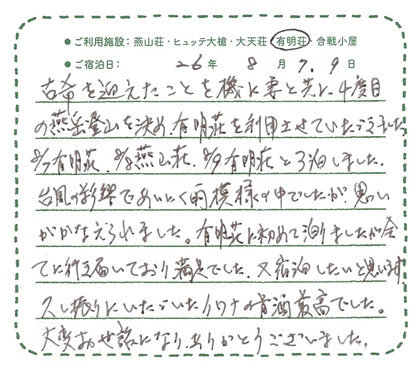 ●ご利用施設:燕山荘・ヒュッテ大槍・大天荘・有明荘・合戦小屋
●ご宿泊日: 26年 8月 7.9日
古希を迎えたことを機に妻と共に、4度目
の燕岳登山を決め、有明荘を利用させていただきました
8/7有明荘、8/8燕山荘、8/9有明荘と3泊しました。
台風の影響であいにく雨模様の中でしたが、思い
がかなえられました。有明荘に初めて泊りましたが全
てに行き届いており満足でした。又宿泊したいと思います
久し振りにいただいたイワナの骨酒最高でした。
大変お世話になり、ありがとうございました。